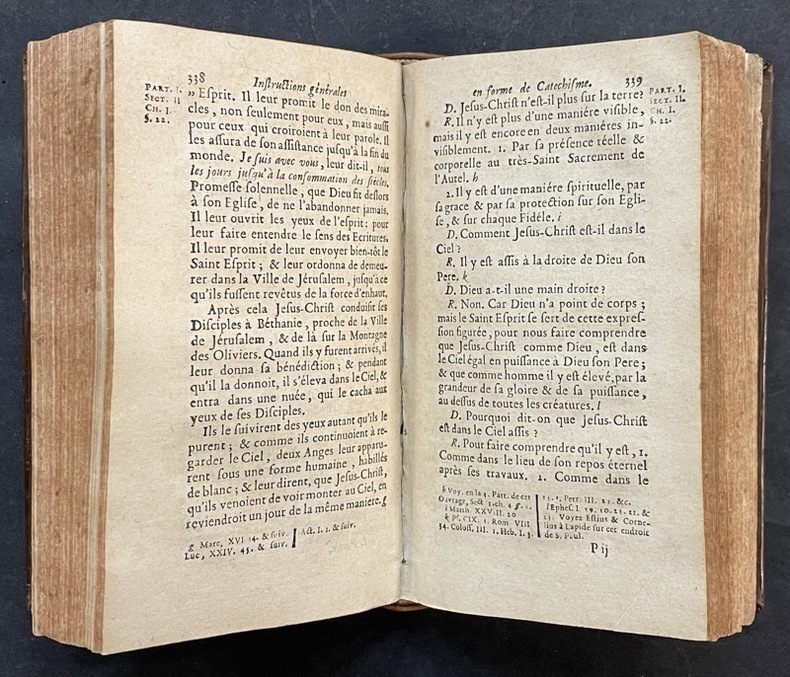 338
Instructions générales
PART. I.
SECT. II
CH. I.
§. 22.
„ Esprit. Il leur promit le don des mira-
cles, non seulement pour eux, mais aussi
pour ceux qui croiroient à leur parole. Il
les assura de son assistance jusqu'à la fin du
monde. Je suis avec vous, leur dit-il, tous
les jours jusqu'à la consommation des siécles.
Promesse solennelle, que Dieu fit deslors
à son Eglise, de ne l'abandonner jamais.
Il leur ouvrit les yeux de l'esprit: pour
leur faire entendre le sens des Ecritures.
Il leur promit de leur envoyer bien-tôt le
Saint Esprit; & leur ordonna de demeu-
rer dans la Ville de Jérusalem, jusqu'à ce
qu'ils fussent revêtus de la force d'enhaut.
Après cela Jesus-Christ conduisit ses
Disciples à Béthanie, proche de la Ville
de Jérusalem, & de là sur la Montagne
des Oliviers. Quand ils y furent arrivés, il
leur donna sa bénédiction; & pendant
qu'il la donnoit, il s'éleva dans le Ciel, &
entra dans une nuée, qui le cacha aux
yeux de ses Disciples.
Ils le suivirent des yeux autant qu'ils le
purent; & comme ils continuoient à re-
garder le Ciel, deux Anges leur apparu-
rent sous une forme humaine, habillés
de blanc; & leur dirent, que Jesus-Christ,
qu'ils venoient de voir monter au Ciel, en
reviendroit un jour de la même maniere. g
g Marc, XVI 14. & suiv.
Luc, XXIV. 45. & suiv.
Act. I. 1. & suiv.
en forme de Catechisme.
339
PART. I.
SECT. II.
CH. I.
§. 22.
D. Jesus-Christ n'est-il plus sur la terre?
R. Il n'y est plus d'une maniére visible,
mais il y est encore en deux maniéres in-
visiblement. 1. Par sa présence réelle &
corporelle au très-Saint Sacrement de
l'Autel. h
2. Il y est d'une maniére spirituelle, par
sa grace & par sa protection sur son Egli-
se, & sur chaque Fidéle. i
D. Comment Jesus-Christ est-il dans le
Ciel?
R. Il y est assis à la droite de Dieu son
Pere. k
D. Dieu a-t-il une main droite?
R. Non. Car Dieu n'a point de corps;
mais le Saint Esprit se sert de cette expres-
sion figurée, pour nous faire comprendre
que Jesus-Christ comme Dieu, est dans
le Ciel égal en puissance à Dieu son Pere;
& que comme homme il y est élevé, par la
grandeur de sa gloire & de sa puissance,
au dessus de toutes les créatures. l
D. Pourquoi dit-on que Jesus-Christ
est dans le Ciel assis?
R. Pour faire comprendre qu'il y est, 1.
Comme dans le lieu de son repos éternel
après ses travaux. 2. Comme dans le
h Voy. en la 3. Part. de cet
Ouvrage, Sect 1. ch. 4
i Matth. XXVIII. 20
k Ps. CIX. 1. Rom. VIII
34. Coloss. III. 1. Heb. I. 3.
13. 1. Petr. III. 22. &c.
l Ephes. I. 19. 20. 21. 22. &
23. Voyez Estius & Corne-
lius à Lapide sur cet endroit
de S. Paul.
P ij